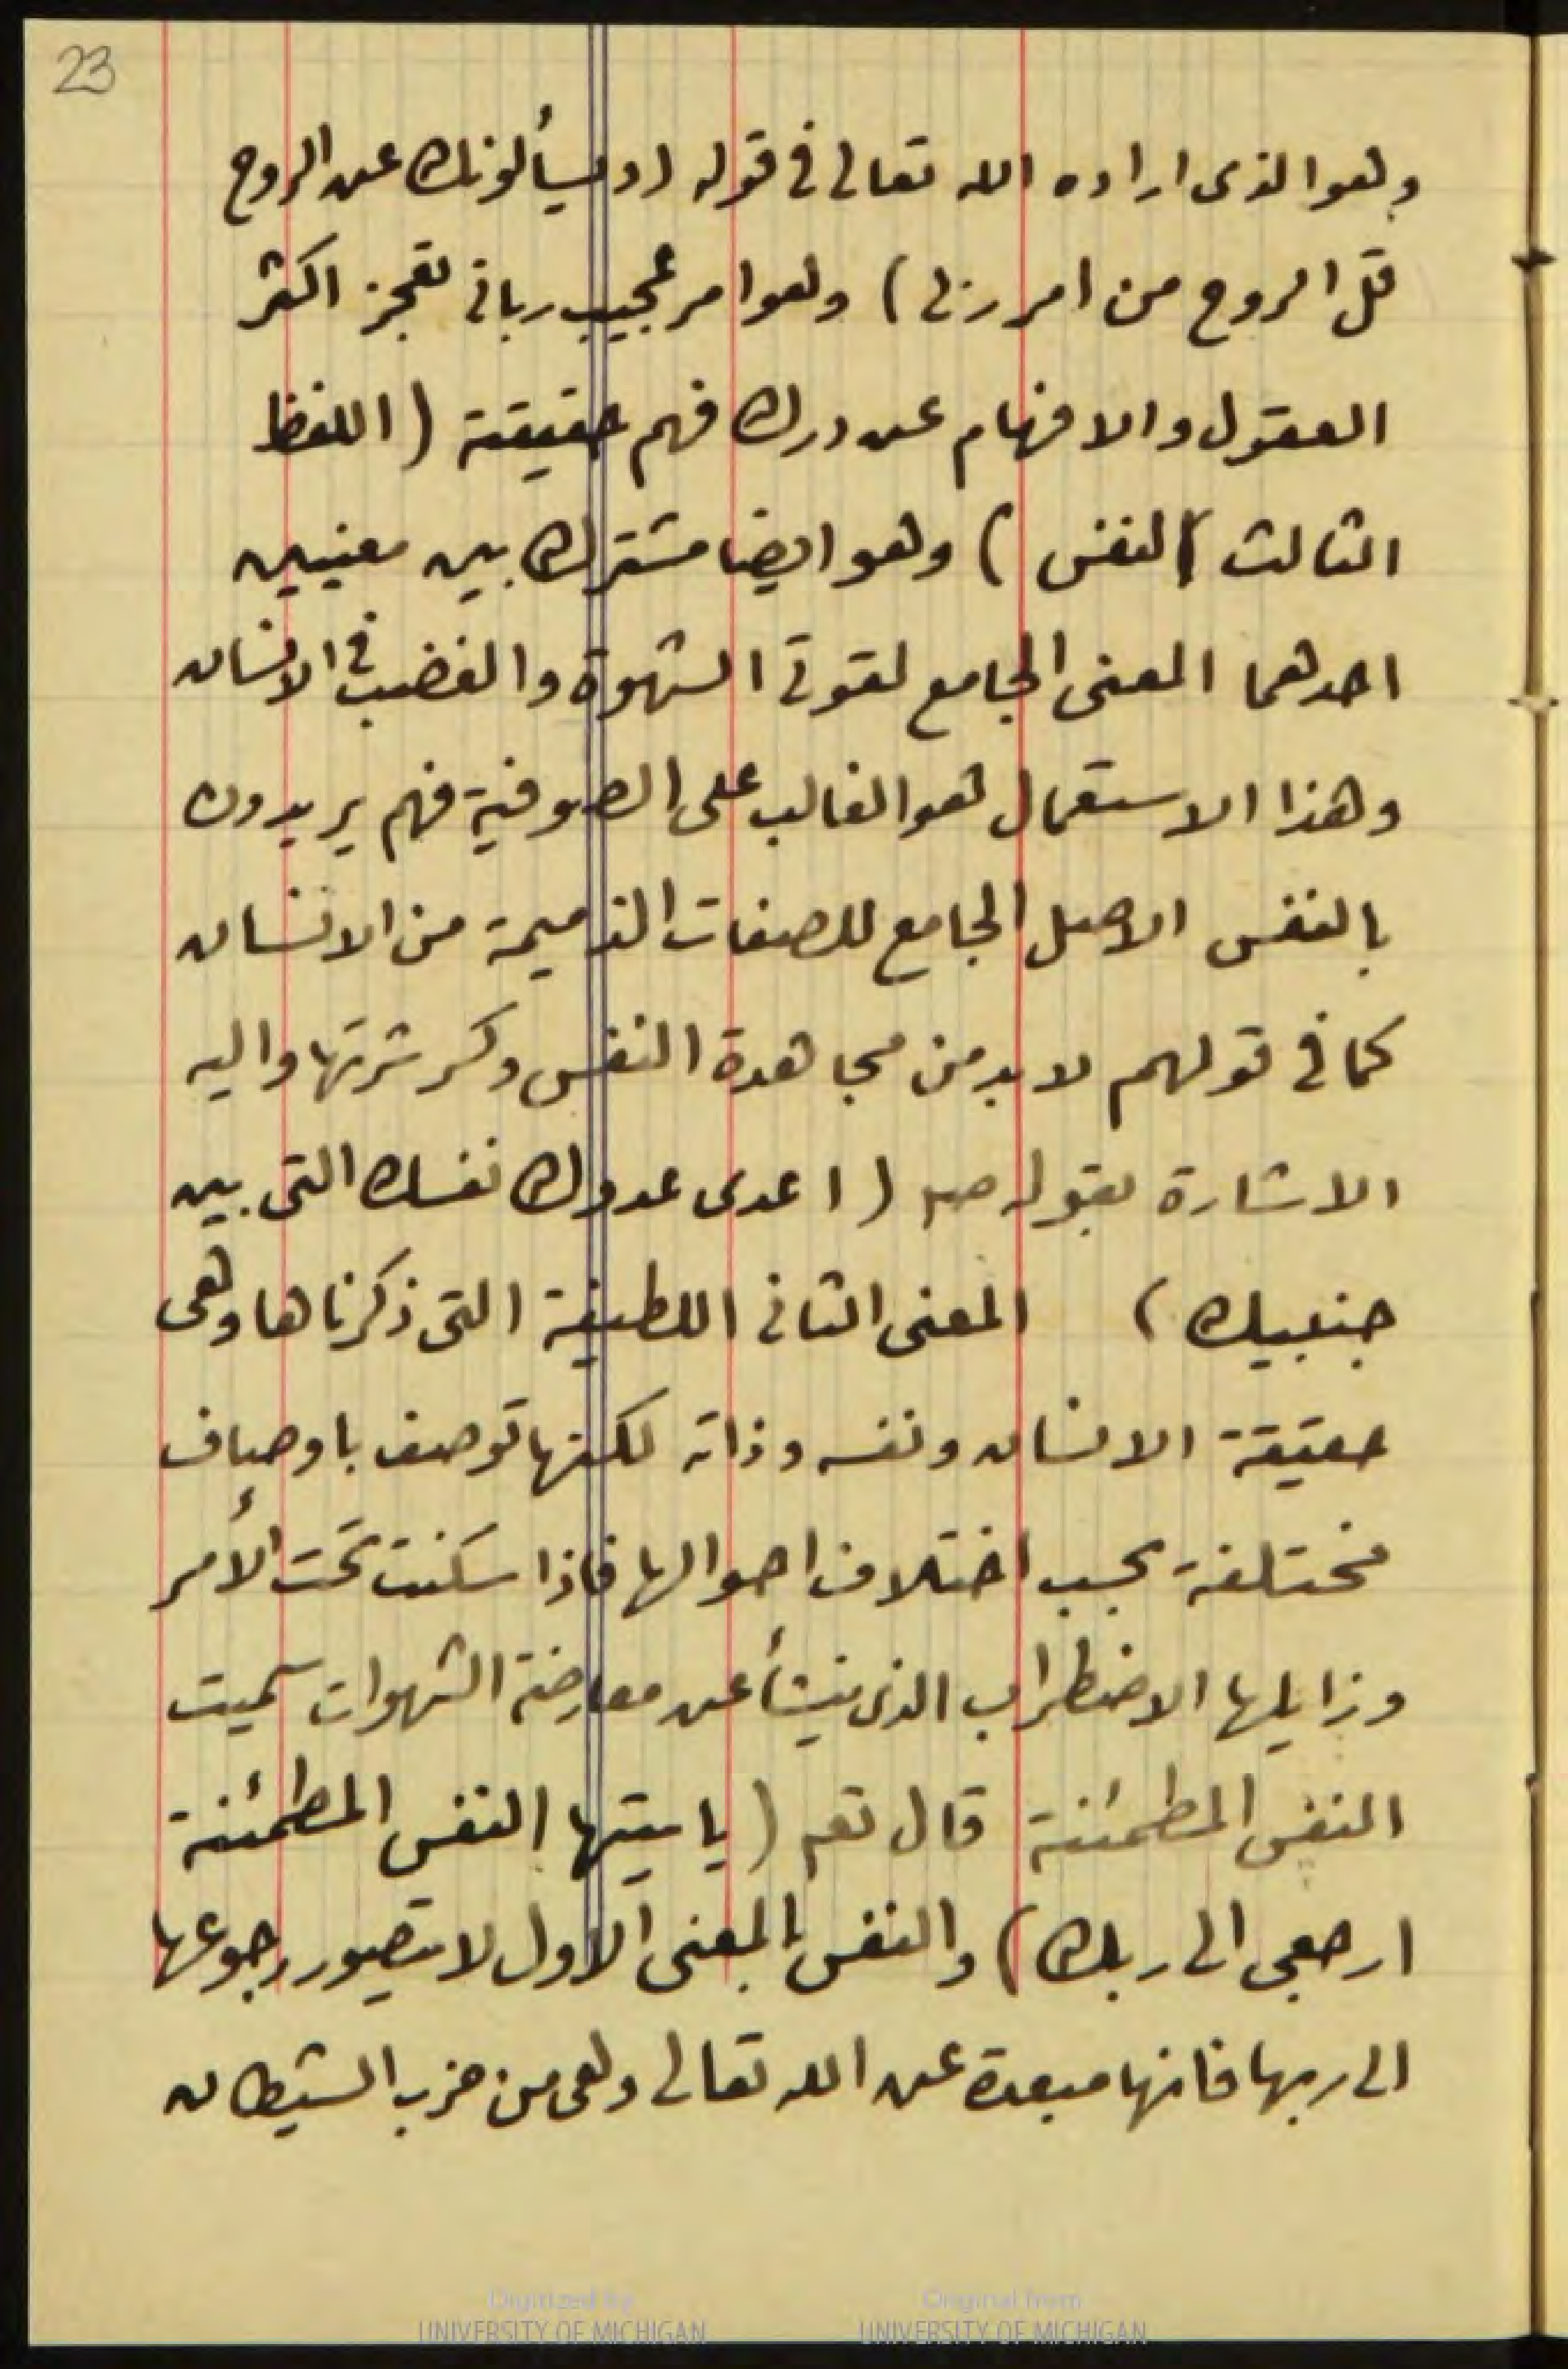 23
وهو الذى اراده الله تعالى فى قوله (ويسألونك عن الروح
قل الروح من امر ربى) وهو امر عجيب ربانى تعجز اكثر
العقول والافهام عن درك فهم حقيقة (اللفظ
الثالث النفس) وهو ايضا مشترك بين معنيين
احدهما المعنى الجامع لقوتى الشهوة والغضب فى الانسان
وهذا الاستعمال هو الغالب على الصوفية فهم يريدون
بالنفس الاصل الجامع للصفات الذميمة من الانسان
كما فى قولهم لابد من مجاهدة النفس وكسر شرتها واليه
الاشارة بقوله صم (اعدى عدوك نفسك التى بين
جنبيك) المعنى الثانى اللطيفة التى ذكرناها وهى
حقيقة الانسان ونفسه وذاته لكنها توصف باوصاف
مختلفة بحسب اختلاف احوالها فاذا سكنت تحت الأمر
وزايلها الاضطراب الذى ينشأ عن معارضة الشهوات سميت
النفس المطمئنة قال تعم (يا ايتها النفس المطمئنة
ارجعى الى ربك) والنفس بالمعنى الاول لا يتصور رجوعها
الى ربها فانها مبعدة عن الله تعالى وهى من حزب الشيطان
Digitized by
UNIVERSITY OF MICHIGAN
Original from
UNIVERSITY OF MICHIGAN